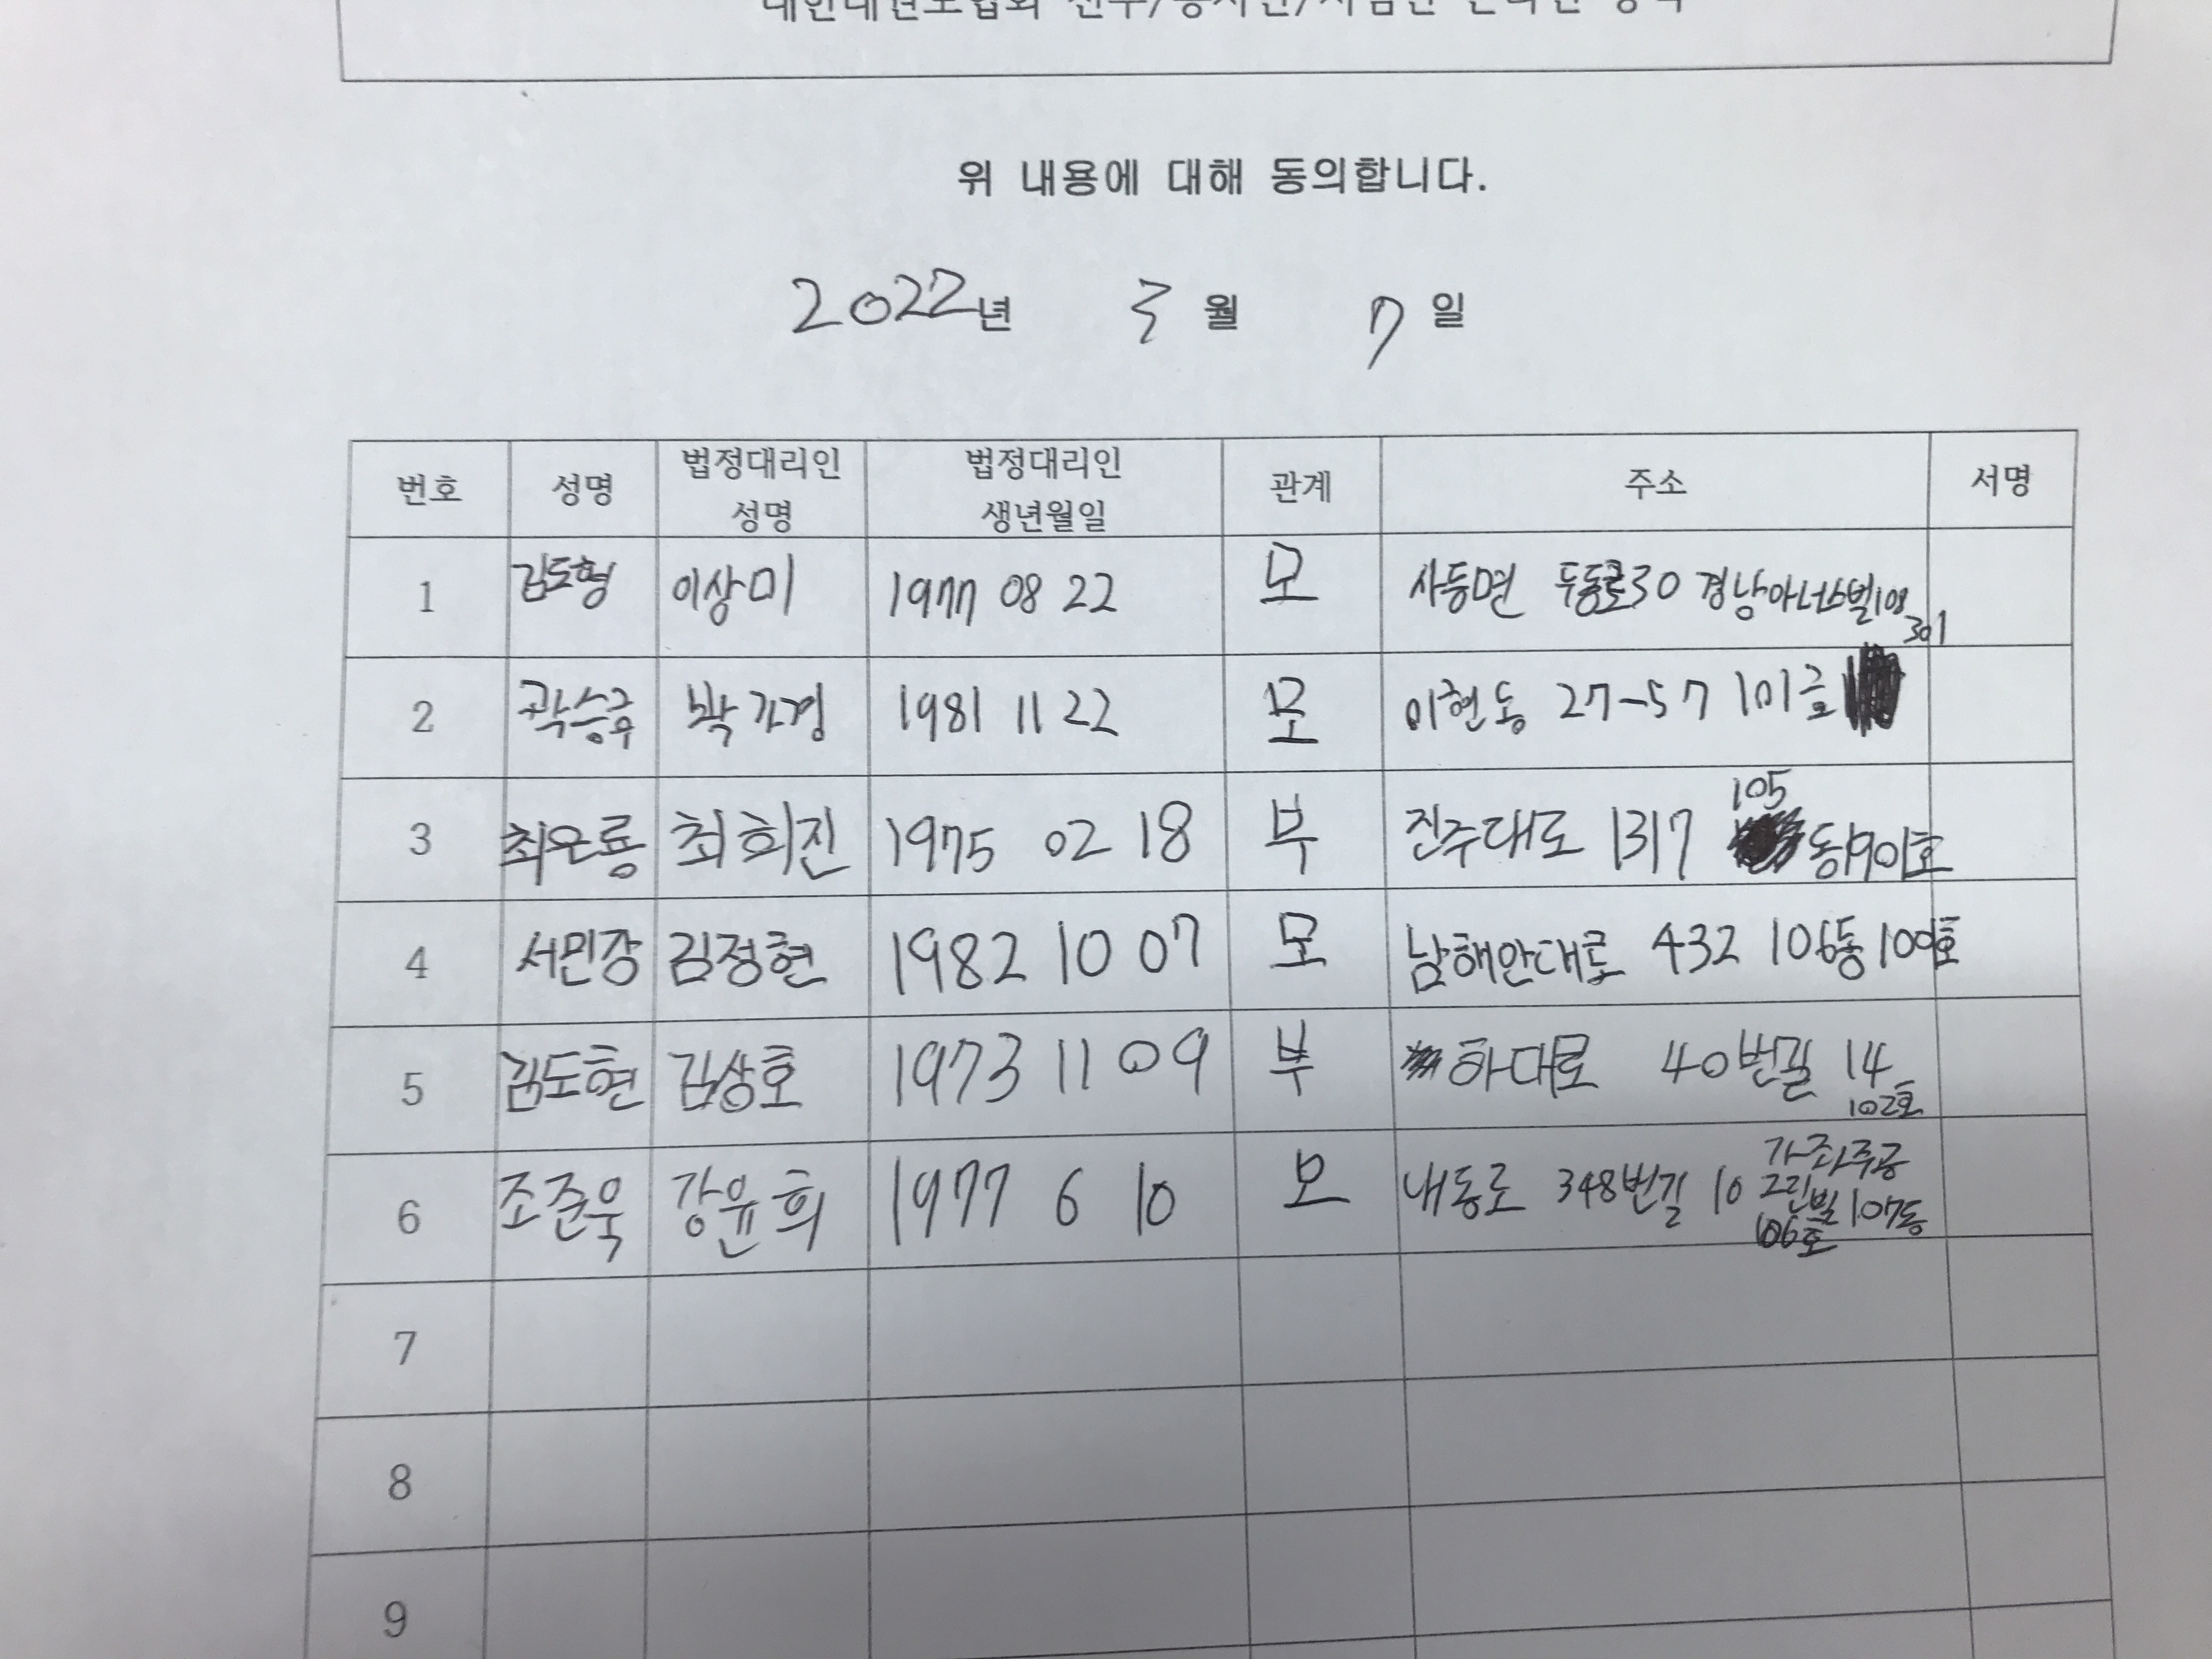 위 내용에 대해 동의합니다.
2022년 3월 7일
번호 성명 법정대리인 성명 법정대리인 생년월일 관계 주소 서명
1 김도형 이상미 1977 08 22 모 사동면 두동로30 경남아너스빌108 301
2 곽승우 박경 1981 11 22 모 이현동 27-57 101호
3 최은룡 최희진 1975 02 18 부 진주대로 1317 105동1901호
4 서민강 김정현 1982 10 07 모 남해안대로 432 106동 1009호
5 김도현 김상호 1973 11 09 부 하대로 40번길 14 102호
6 조준욱 강윤희 1977 6 10 모 내동로 348번길 10 가좌주공 그린빌 107동 106호
7
8
9